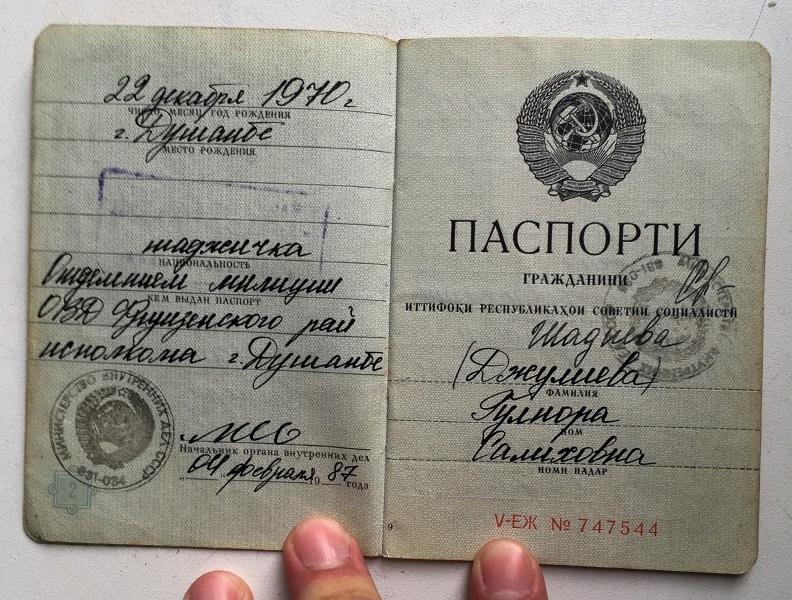 22 декабря 1970 г
ЧИСЛО, МЕСЯЦ, ГОД РОЖДЕНИЯ
г. Душанбе
МЕСТО РОЖДЕНИЯ
таджичка
НАЦИОНАЛЬНОСТЬ
Отделением милиции
КЕМ ВЫДАН ПАСПОРТ
ОВД Фрунзенского рай
исполкома г. Душанбе
МИНИСТЕРСТВО ВНУТРЕННИХ ДЕЛ СССР
631-034
Начальник органа внутренних дел
04 февраля 1987 года
2
ПАСПОРТИ
ГРАЖДАНИНИ
ИТТИФОҚИ РЕСПУБЛИКАҲОИ СОВЕТИИ СОЦИАЛИСТӢ
(Джулиева)
ФАМИЛИЯ
Гулнора
НОМ
Салиховна
НОМИ ПАДАР
V-ЕЖ № 747544
9